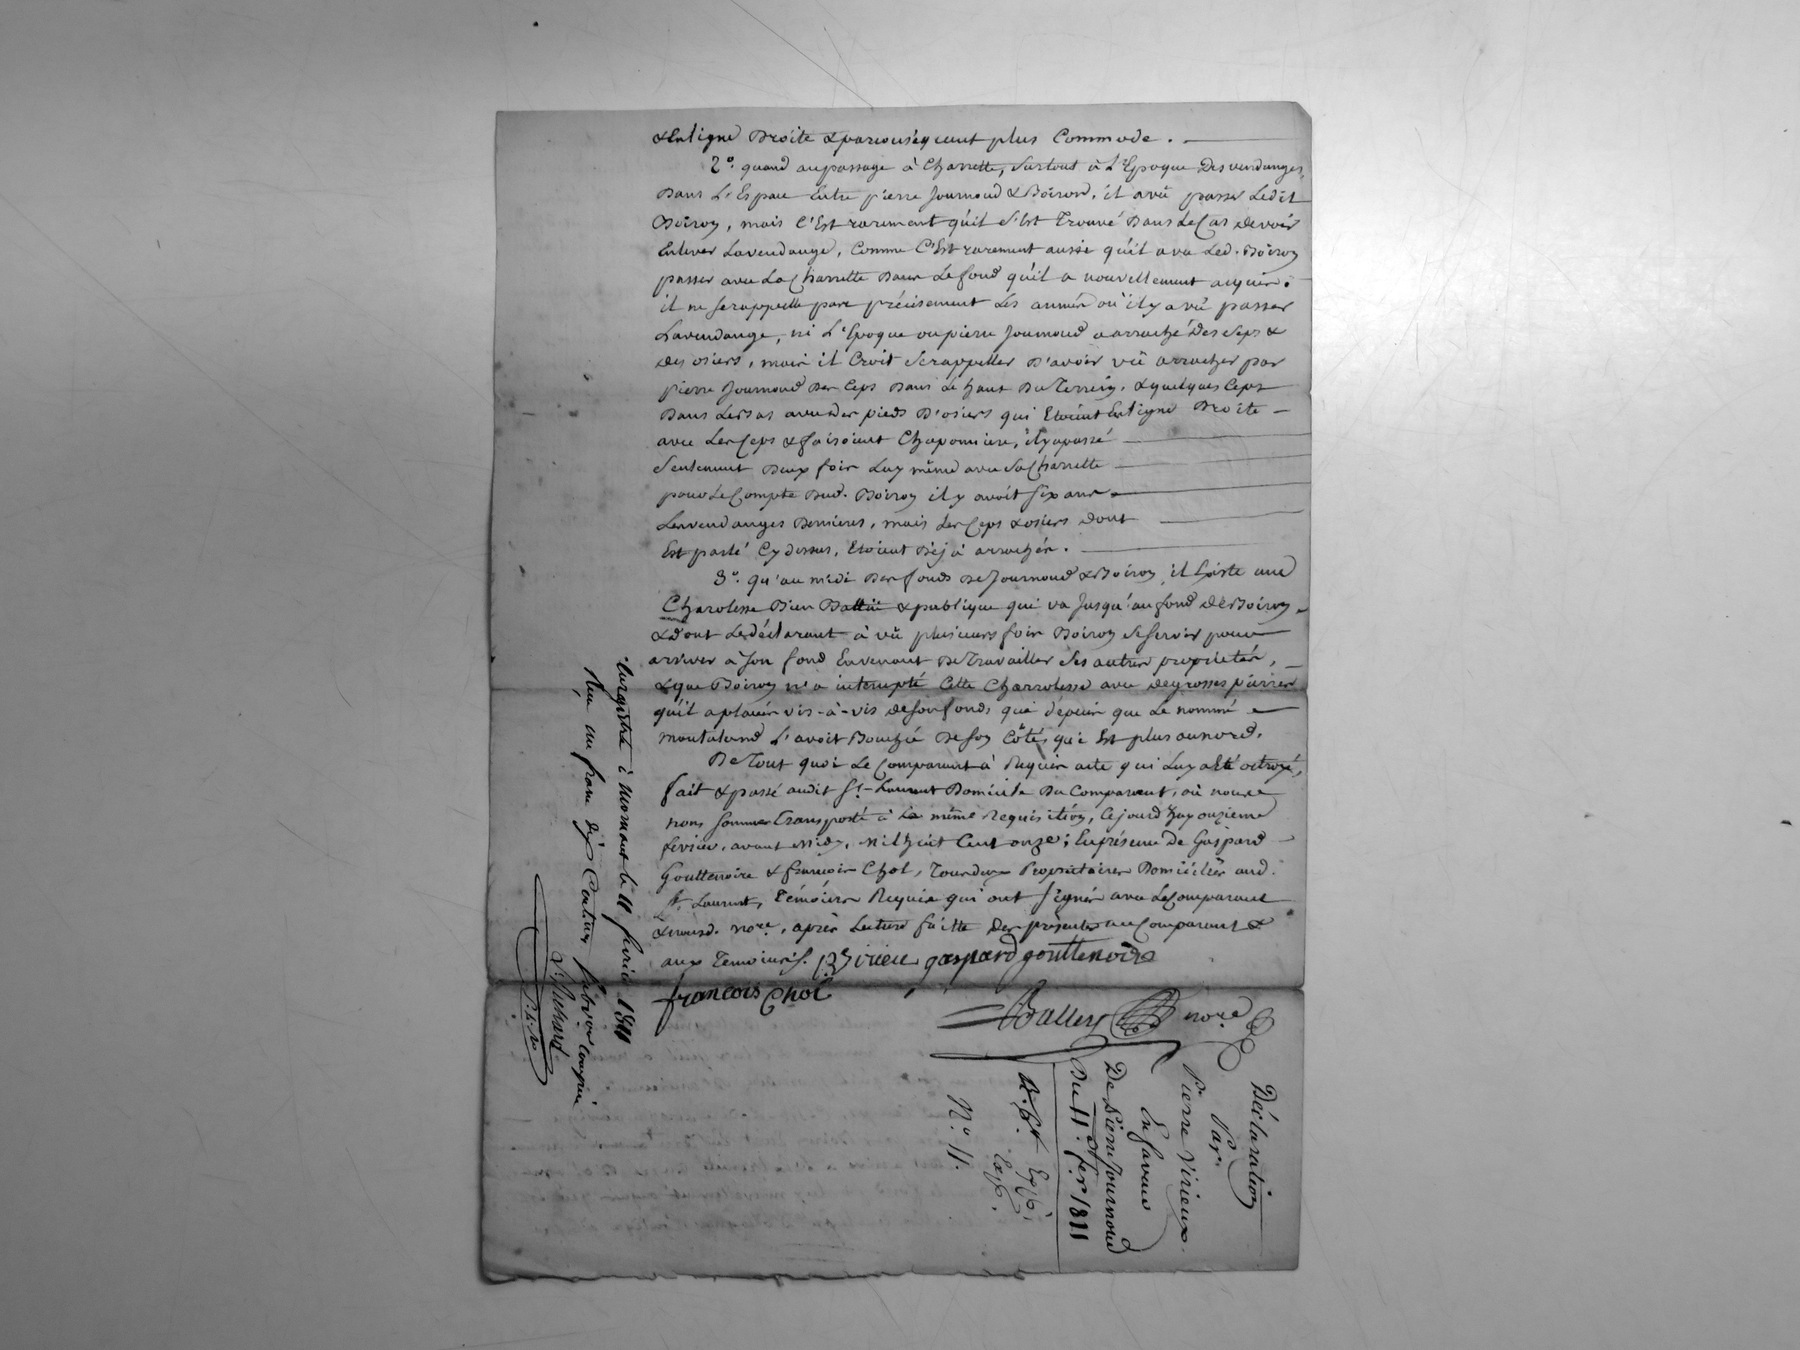 & En ligne Droite & par conséquent plus Commode.
2°. quand au passage à Charrette, surtout à L'Epoque Des vendanges,
Dans L'Espace Entre pierre Journoud & Boiron, il a vû passer Ledit
Boiron, mais C'Est rarement qu'il s'Est Trouvé Dans Le Cas de voir
Enlever La vendange, Comme C'Est rarement aussi qu'il a vu Led. Boiron
passer avec La Charrette Dans Le fond qu'il a nouvellement acquis.
il ne se rappelle pas précisement Les années où il y a vû passer
La vendange, ni L'Epoque ou pierre Journoud a arraché Des Seps &
des osiers, mais il Croit se rappeller D'avoir vû arracher par
pierre Journoud Des Ceps Dans Le haut Du Terrein, & quelques Ceps
Dans Le bas avec Des pieds D'osiers qui Etoient En ligne Droite
avec Les Ceps & faisoient Chaponniere, il y a passé
seulement Deux fois Luy même avec Sa Charrette
pour Le Compte Dud. Boiron il y avoit six ans
Les vendanges Dernieres, mais Les Ceps & osiers Dont
Est parlé Cy dessus, Etoient Déjà arrachés.
3°. qu'au midi Des fonds De Journoud & Boiron, il Existe une
Charolesse Bien Battüe & publique qui va Jusqu'au fond de Boiron
& dont Le déclarant à vû plusieurs fois Boiron se servir pour
arriver à Son fond En venant De Travailler Ses autres propriétés,
& que Boiron n'a interrupté Cette Charrolesse avec de grosses pierres
qu'il a placées vis-à-vis de Son fonds que depuis que Le nommé
Montaland L'avoit Bouchée De son Côté, qui Est plus au nord.
De Tout quoi Le Comparant à Requis acte qui Luy a Eté octroyé,
fait & passé audit St. Laurent Domicile Du Comparant, où nous
nous sommes Transporté à La même Requisition, Cejourd'huy onzieme
fevrier, avant Midy, Mil huit Cent onze; En présence de Gaspard
Gouttenoire & francois Chol, Tous deux Propriétaires Domiciliés aud.
St. Laurent, Témoins Requis qui ont Signés avec Le Comparant
& nousd. nore, après Lecture faitte Des présentes au Comparant &
aux Temoins.
gaspard gouttenoire
francois Chol
nore
Enregistré à Mornant le 11 fevrier 1811
Reçu un franc dix Centimes subvention Comprise
Déclaration
Par
Pierre Virieux
En faveur
De Pierre Journoud
Du 11e. fer. 1811
N° 11.